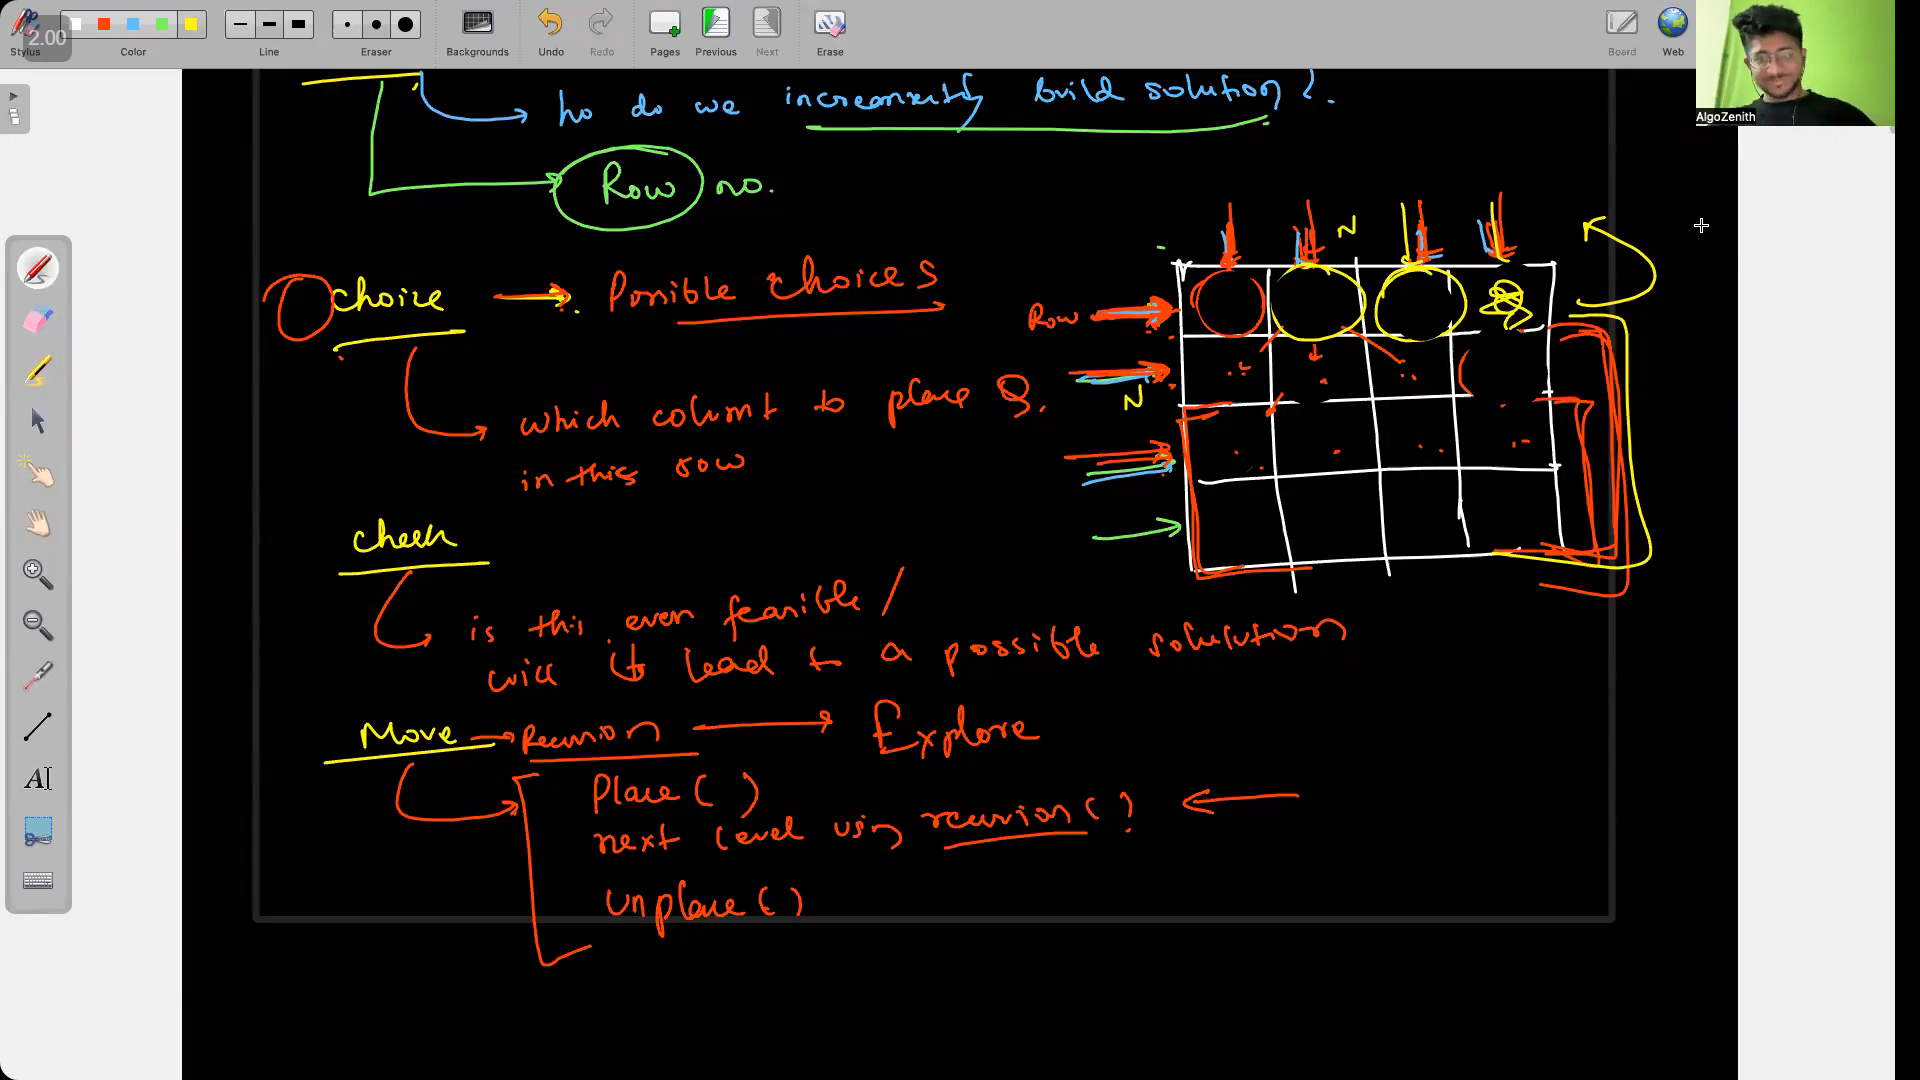 2.00
Stylus
Color
Line
Eraser
Backgrounds
Undo
Redo
Pages
Previous
Next
Erase
Board
Web
AlgoZenith
ho do we incrementy build solution?.
Row no.
Choice → Possible choices
which column to place Q.
in this row
Row
N
N
Check
is this even feasible /
will it lead to a possible solution
Move → Recursion → Explore
Place ( )
next level using recursion ( )
Unplace ( )
AI